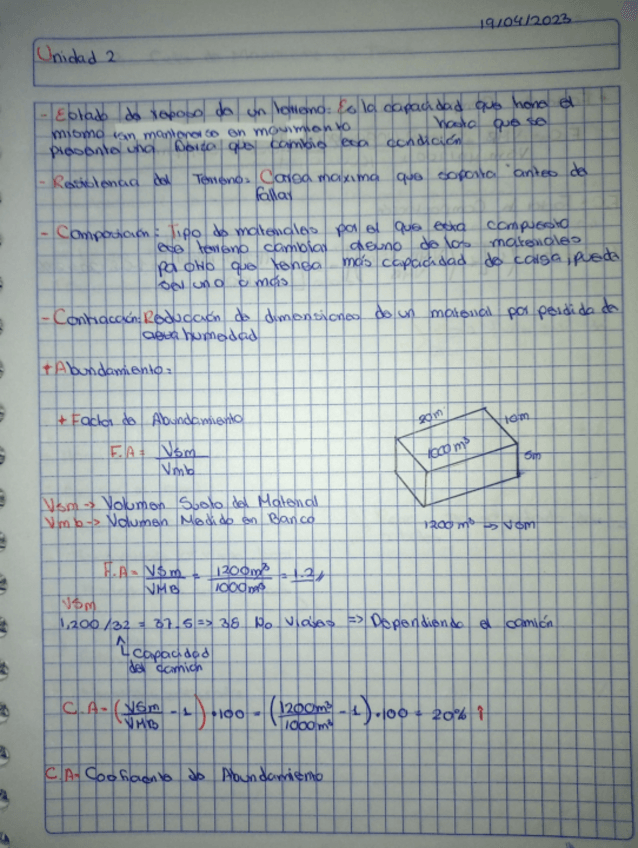 19/04/2023
Unidad 2
- Estado de reposo de un terreno: Es la capacidad que tiene el
mismo en mantenerse en movimiento hasta que se
presente una fuerza que cambie esa condición
- Resistencia del Terreno: Carga maxima que soporta antes de
fallar
- Compactación: Tipo de materiales por el que esta compuesto
ese terreno cambiar alguno de los materiales
pa otro que tenga más capacidad de carga, puede
ser uno o más
- Contracción: Reducción de dimensiones de un material por perdida de
agua humedad
+ Abundamiento:
+ Factor de Abundamiento
F.A = Vsm / Vmb
20m
10m
1000m³
5m
1200m³ → Vsm
Vsm → Volumen Suelto del Material
Vmb → Volumen Medido en Banco
F.A = VSm / VMB = 1200m³ / 1000m³ = 1.2
VSm
1,200/32 = 37.5 => 38 No Viajes => Dependiendo el camión
Capacidad
del camión
C.A = (VSm / VMB - 1) · 100 = (1200m³ / 1000m³ - 1) · 100 = 20% ↑
C.A = Coeficiente de Abundamiento